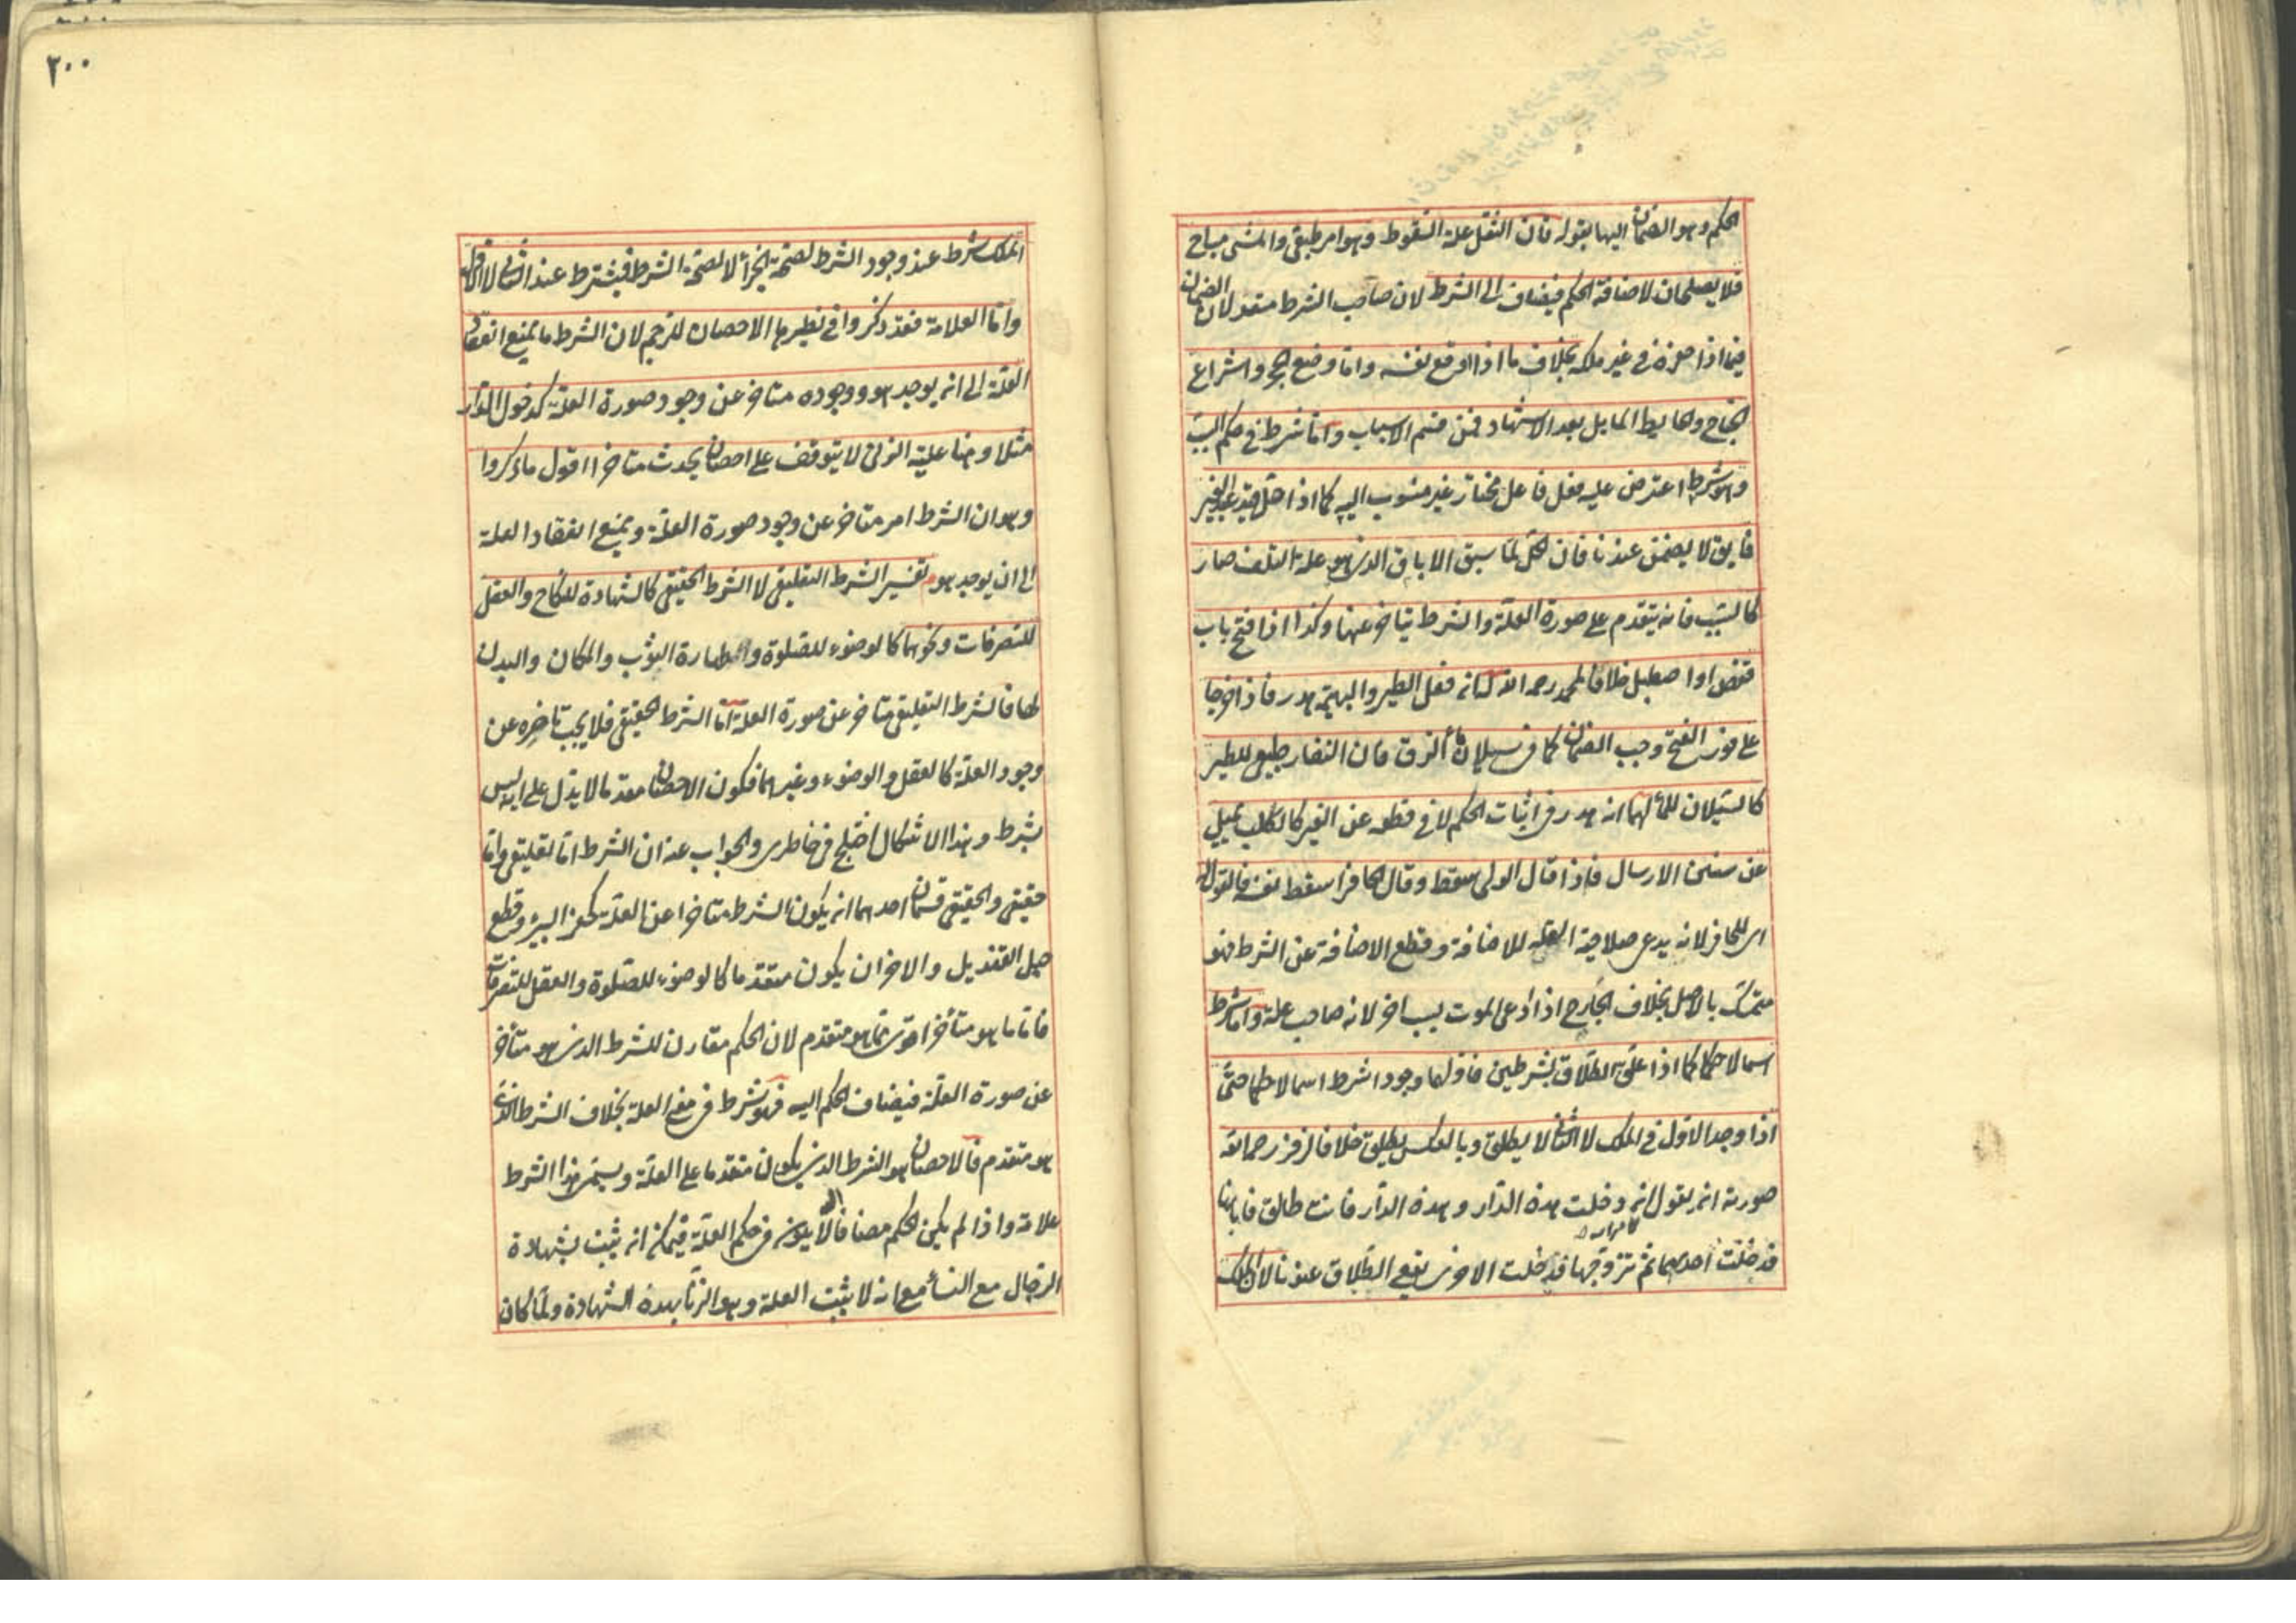 الحكم وهو الضمان اليها بقوله فان الثقل علة السقوط وهو امر طبيعى والمشى مباح
فلا يصلحان لاضافة الحكم فيضاف الى الشرط لان صاحب الشرط متعد لان الضمان
فيما اذا حفره فى غير ملكه بخلاف ما اذا اوقع نفسه واما وضع الحجر واشراع
الجناح والحايط المايل بعد الاشهاد فمن قسم الاسباب واما شرط فى حكم السبب
وهو شرط اعترض عليه فعل فاعل مختار غير منسوب اليه كما اذا حل قيد عبد الغير
فابق لا يضمن عندنا فان الحل لما سبق الاباق الذى هو علة التلف صار
كالسبب فانه يتقدم على صورة العلة والشرط يتاخر عنها وكذا اذا فتح باب
قفص او اصطبل خلافا لمحمد رحمه الله له انه فعل الطير والبهيمة هدر فاذا خرجا
على فور الفتح وجب الضمان كما فى سيلان ماء الزق فان النفار طبيعى للطير
كالسيلان للماء لهما انه هدر فى اثبات الحكم لا فى قطعه عن الغير كالكلب يميل
عن سنن الارسال فاذا قال الولى سقط وقال الحافر اسقط نفسه فالقول له
اى للحافر لانه يدعى صلاحية العلة للاضافة وقطع الاضافة عن الشرط فهو
متمسك بالاصل بخلاف الجارح اذا ادعى الموت بسبب اخر لانه صاحب علة واما شرط
اسما لا حكما كما اذا علق الطلاق بشرطين فاولهما وجودا شرط اسما لا حكما حتى
اذا وجد الاول فى الملك لا الثانى لا يطلق وبالعكس يطلق خلافا لزفر رحمه الله
صورته انه يقول ان دخلت هذه الدار وهذه الدار فانت طالق فابانها
فدخلت احدهما ثم تزوجها فدخلت الاخرى يقع الطلاق عندنا لان الملك
٢٠٠
الملك شرط عند وجود الشرط لصحة الجزاء لا لصحة الشرط فيشترط عند الثانى لا الاول
واما العلامة فقد ذكروا فى نظيرها الاحصان للرجم لان الشرط ما يمنع انعقاد
العلة الى ان يوجد هو ووجوده متاخر عن وجود صورة العلة كدخول الدار
مثلا وهنا علية الزنى لا يتوقف على احصان يحدث متاخرا اقول ما ذكروا
وهو ان الشرط امر متاخر عن وجود صورة العلة ويمنع انعقاد العلة
الى ان يوجد هو تفسير الشرط التعليقى لا الشرط الحقيقى كالشهادة للنكاح والعقل
للتصرفات ونحوهما كالوضوء للصلوة والطهارة الثوب والمكان والبدن
لها فالشرط التعليقى متاخر عن صورة العلة اما الشرط الحقيقى فلا يجب تاخره عن
وجود العلة كالعقل والوضوء وغيرهما فكون الاحصان مقدما لا يدل على انه ليس
بشرط وهذا الاشكال اختلج فى خاطرى والجواب عنه ان الشرط اما تعليقى واما
حقيقى والحقيقى قسمان احدهما انه يكون الشرط متاخرا عن العلة كحفر البير وقطع
حبل القنديل والاخر ان يكون متقدما كالوضوء للصلوة والعقل للتصرفات
فاما ما هو متأخر اقوى مما هو متقدم لان الحكم مقارن للشرط الذى هو متأخر
عن صورة العلة فيضاف الحكم اليه فهو شرط فى معنى العلة بخلاف الشرط الذى
هو متقدم فالاحصان هو الشرط الذى يكون متقدما على العلة ويسمى هذا الشرط
علامة واذا لم يكن الحكم مضافا اليه لا يكون فى حكم العلة فيمكن انه يثبت بشهادة
الرجال مع النساء مع انه لا يثبت العلة وهو الزنا بهذه الشهادة ولما كان